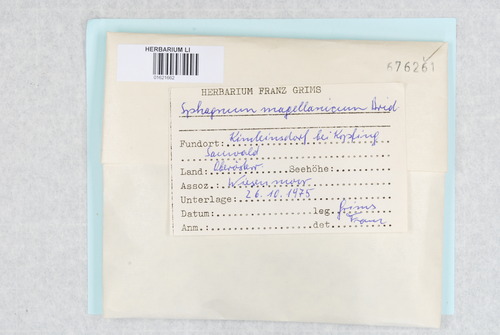 HERBARIUM LI
676261
HERBARIUM FRANZ GRIMS
Sphagnum magellanicum Brid
Fundort: bei Kopfing
Sauwald
Land: Oberöster Seehöhe:
Assoz. Wiesenmoor
Unterlage: 26.10.1975
Datum: leg. Grims
Anm.: det. Franz